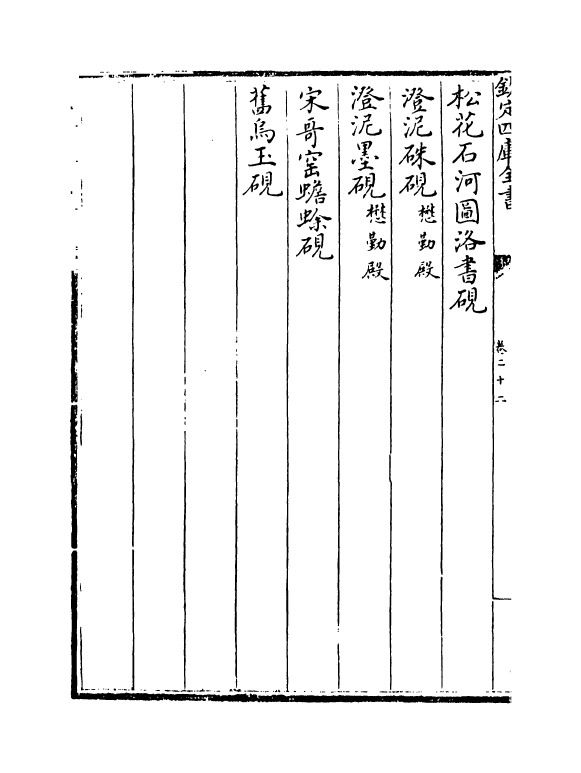 欽定四庫全書
卷二十二
松花石河圖洛書硯
澄泥硃硯懋勤殿
澄泥墨硯懋勤殿
宋哥窑蟾蜍硯
舊烏玉硯